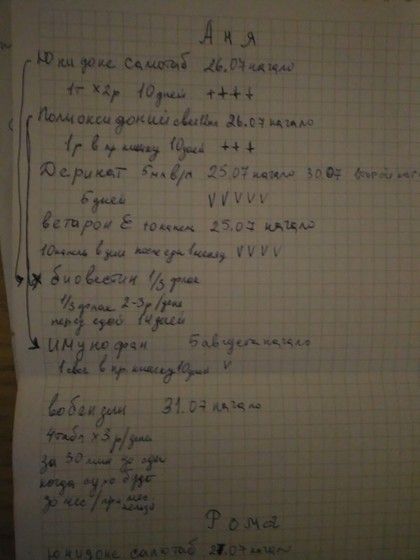 Аня
Юнидокс салютаб 26.07 начало
1т х2р 10дней ++++
Полиоксидоний свечи 26.07 начало
1р в пр кишку 10дней +++
Деринат 5мл в/м 25.07 начало 30.07 второй
5 дней VVVVV
ветарон Е 10капель 25.07 начало
10капель в день после еды VVVV
биовестин 1/3 флак
1/3 флак 2-3р/день
перед едой 14дней
имунофан 5августа начало
1свеч в пр кишку 10дней V
вобензим 31.07 начало
4табл х3р/день
за 30мин до еды
когда
Рома
юнидокс салютаб 27.07 начало